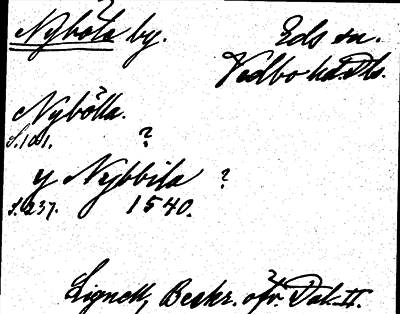 Nyböla by. Eds sn.
Vedbo hd. Dls.
Nybölla.
S. 101. ?
y Nybbila ?
S. 237. 1540.
Lignell, Beskr. öfv. Dal. II.